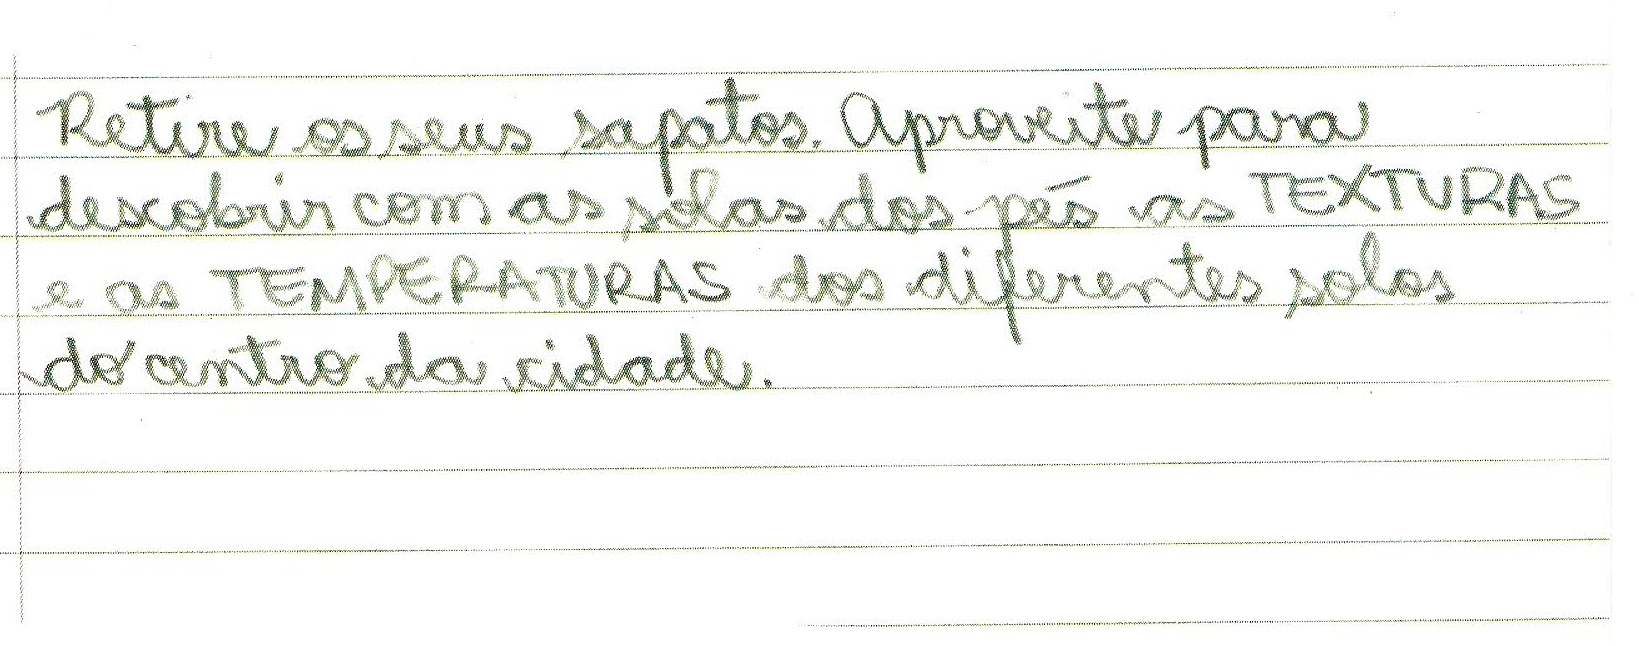 Retire os seus sapatos. Aproveite para
descobrir com as solas dos pés as TEXTURAS
e as TEMPERATURAS dos diferentes solos
do centro da cidade.